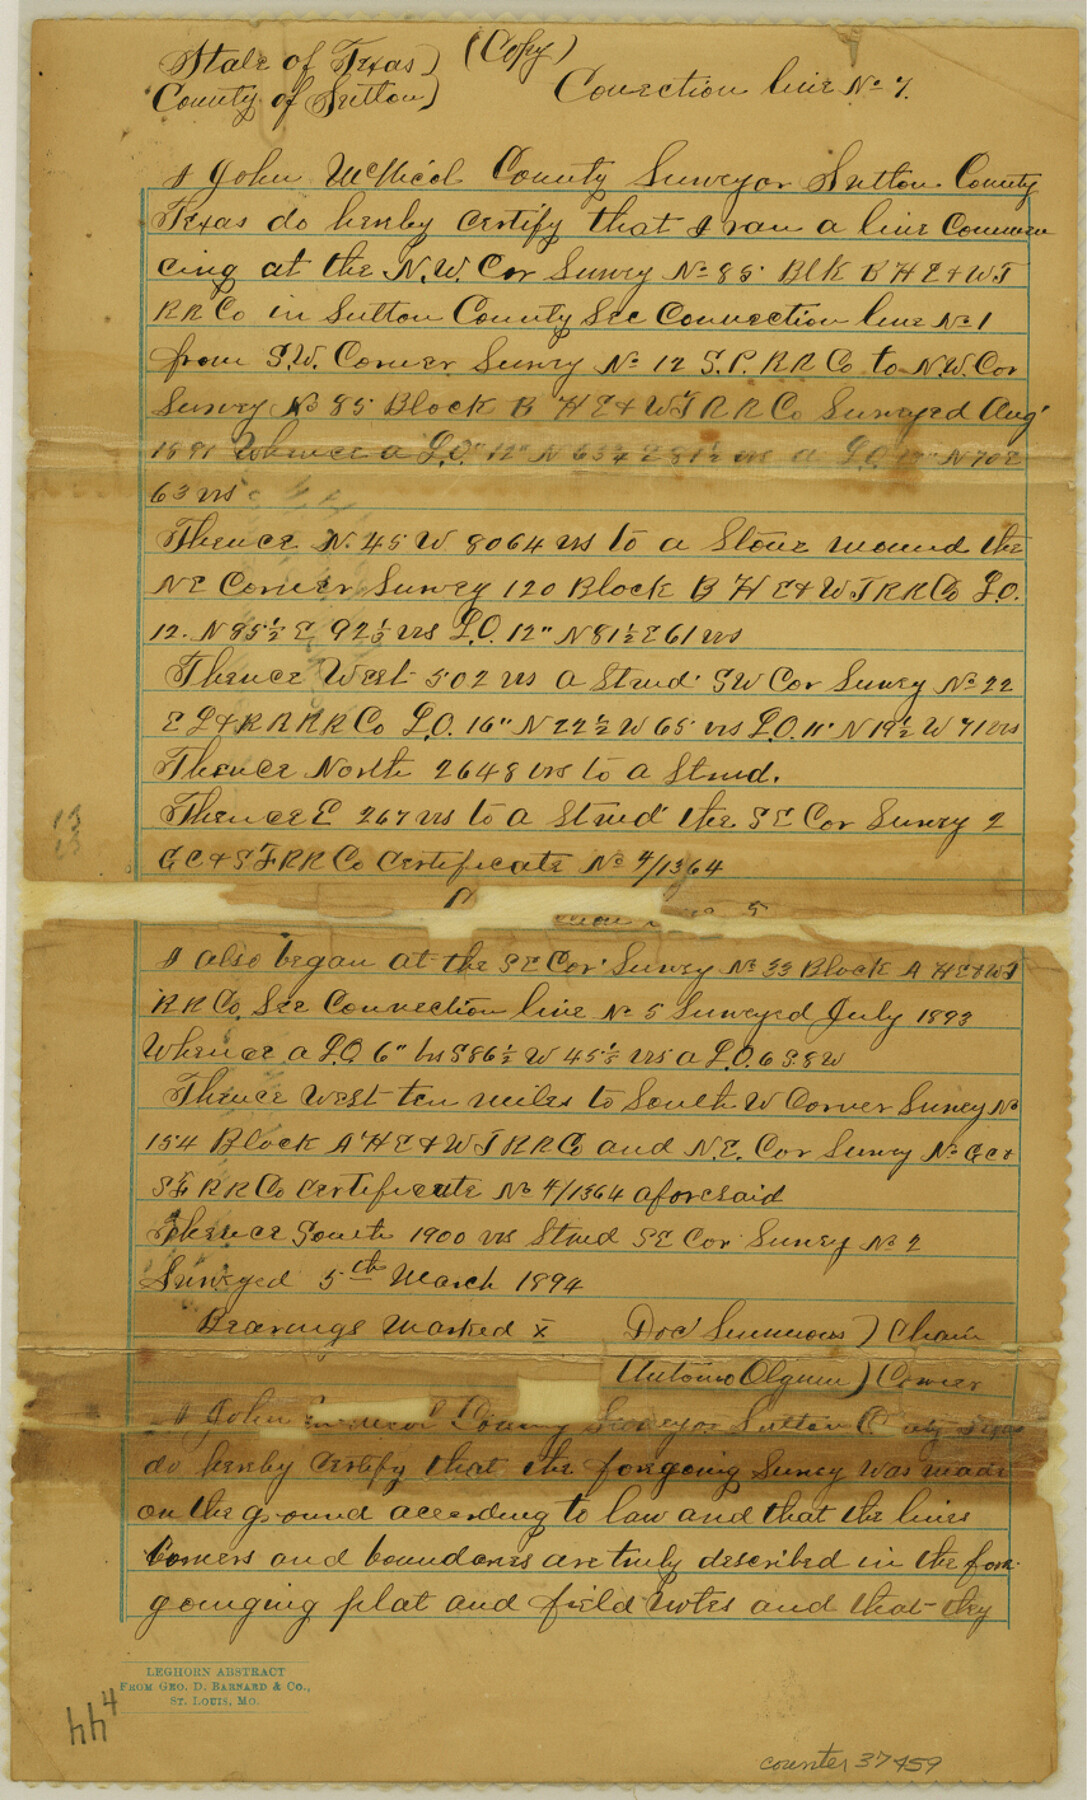 State of Texas) (Copy)
County of Sutton) Conection line No 7.
I John McNicol County Surveyor Sutton County
Texas do hereby certify that I ran a line Commen
cing at the N.W. Cor Survey No 85 Blk B H E & W T
R R Co in Sutton County See Connection line No 1
from S.W. Corner Survey No 12 S.P. R R Co to N.W. Cor
Survey No 85 Block B H E & W T R R Co Surveyed Aug
1891 Whence a L.O. 12" N 63¾ E 81½ vrs a L.O. N 70 E
63 vrs
Thence N. 45 W 8064 vrs to a Stone mound the
NE Corner Survey 120 Block B H E & W T R R Co L.O.
12. N 85½ E 92½ vrs L.O. 12" N 81½ E 61 vrs
Thence West 502 vrs a Stmd SW Cor Survey No 22
E L & R R R R Co L.O. 16" N 22½ W 65 vrs L.O. 11" N 19½ W 71 vrs
Thence North 2648 vrs to a Stmd.
Thence E 267 vrs to a Stmd the S E Cor Survey 2
G C & S F R R Co Certificate No 4/1364
5
I also began at the S E Cor Survey No 33 Block A H E & W T
R R Co. See Connection line No 5 Surveyed July 1893
Whence a L.O. 6" brs S 86½ W 45½ vrs a L.O. 6 S. 8 W
Thence West ten miles to South W Corner Survey No
154 Block A H E & W T R R Co and N.E. Cor Survey No G C &
S F R R Co Certificate No 4/1364 aforesaid
Thence South 1900 vrs Stmd S E Cor Survey No 2
Surveyed 5th March 1894
Bearings Marked X Doc Simmons ) Chain
Antonio Olguin ) Carriers
I John County Surveyor Sutton
do hereby Certify that the foregoing Survey was made
on the ground according to law and that the lines
Corners and boundaries are truly described in the fore
gouging plat and field notes and that they
LEGHORN ABSTRACT
FROM GEO. D. BARNARD & CO.,
ST. LOUIS, MO.
44 4
counter 37459
33